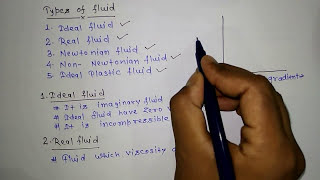 Types of fluid
1. Ideal fluid ✓
2. Real fluid ✓
3. Newtonian fluid ✓
4. Non- Newtonian fluid ✓
5 Ideal Plastic fluid ✓
gradient
1. Ideal fluid
* It is imaginary fluid
* Ideal fluid have zero
* It is incompressible
2. Real fluid
* Fluid which viscosity